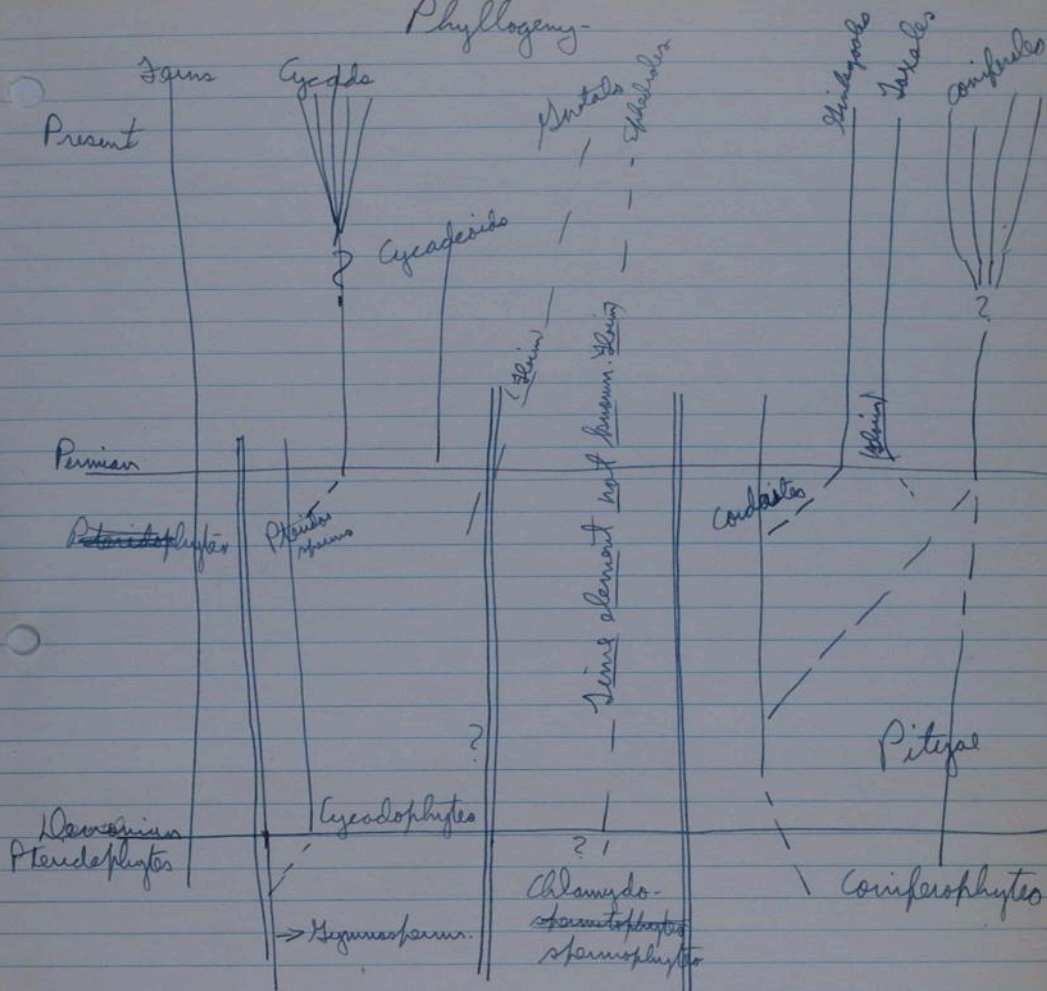 Phyllogeny-
Ferns
Cycads
Gnetals
Ephedrales
Ginkgoales
Taxales
Coniferales
Present
Cycadeoids
?
(Florin)
Time element not known. Florin
(Florin)
Permian
Pteridophytes
Pterido
sperms
Cordaites
?
Pityae
Cycadophytes
Devonian
Pteridophytes
?
Chlamydo-
spermatophytes
spermophytes
Coniferophytes
→ Gymnosperms.